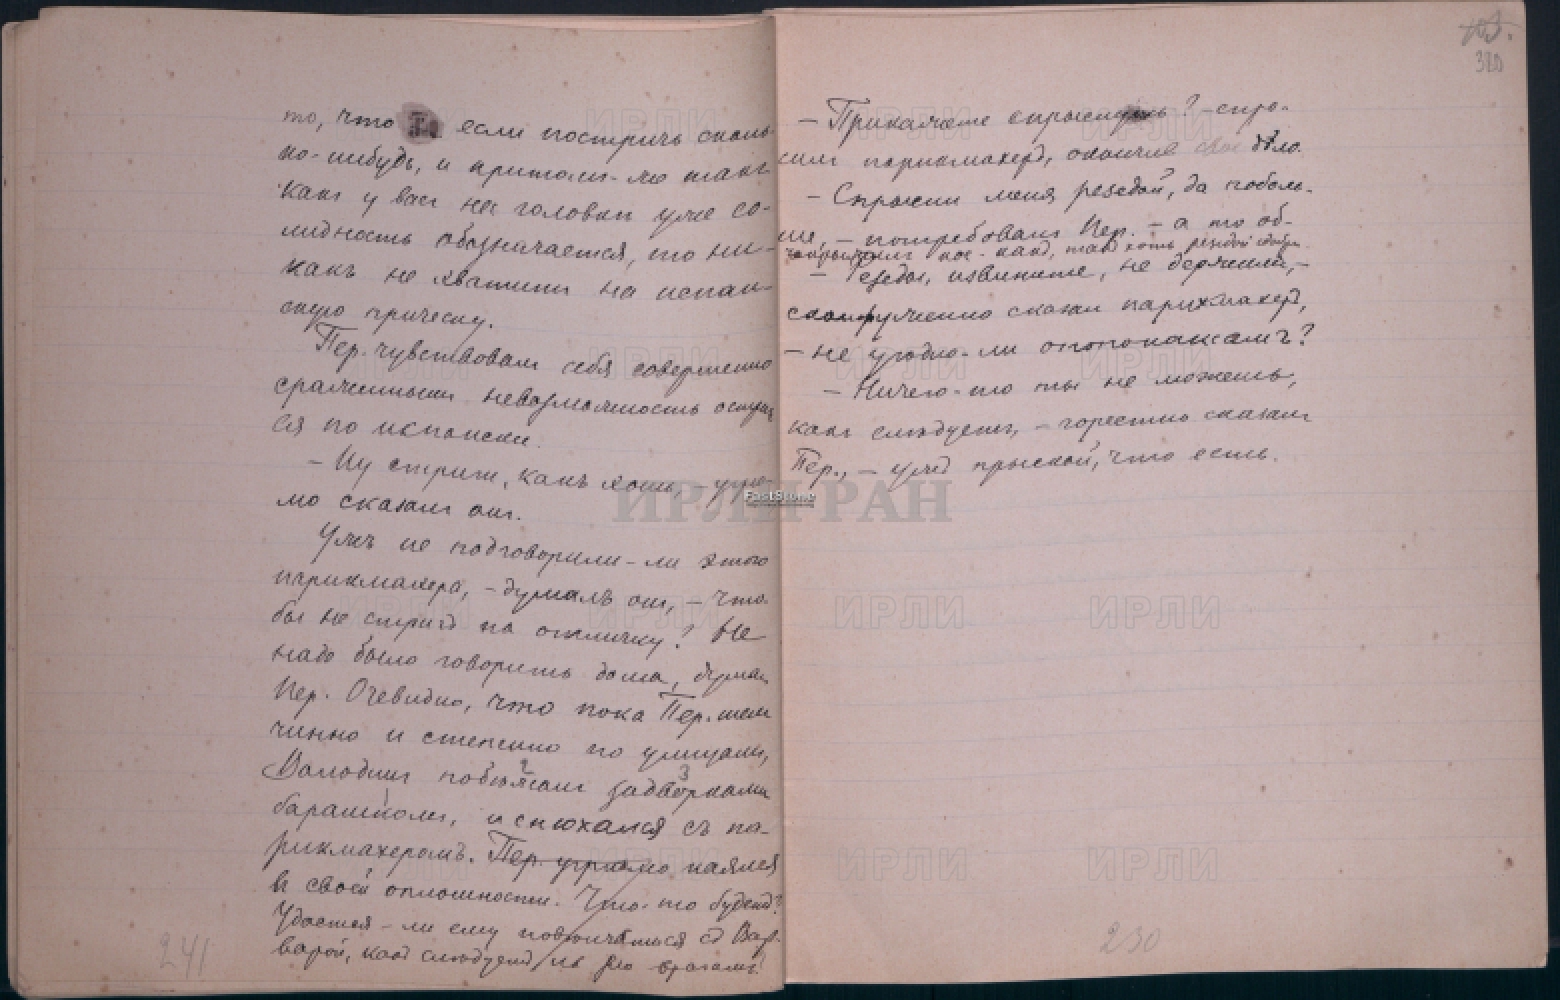 то, что если постричь сколь-
ко-нибудь, и принимая-же такъ
какъ у васъ на головахъ уже со-
лидность обозначается, то ни-
какъ не хватитъ на испан-
скую прическу.
Пер. чувствовалъ себя совершенно
сраженнымъ невозможность остричь-
ся по испански.
– Ну стриги, какъ хошь, – угрю-
мо сказалъ он.
Ужъ не подговорили-ли этого
парикмахера, – думалъ он, – что-
бы не стригъ на отличку? Не
надо было говорить дома, думалъ
Пер. Очевидно, что пока Пер. шелъ
чинно и степенно по улицамъ,
Володинъ побѣжалъ задворками
барашкомъ, и снюхался съ па-
рикмахеромъ. Пер. угрюмо каялся
въ своей оплошности. Что-то будетъ?
Удастся-ли ему повѣнчаться съ Вар-
варой, какъ слѣдуетъ
241
105.
– Прикажете спрыснуть? – спро-
силъ парикмахеръ, окончив свое дѣло.
– Спрысни меня резедой, да поболь-
ше, – потребовалъ Пер. – а то об-
кое-какъ, такъ хоть резедой сдобри.
– Резеды, извините, не держимъ, –
сконфуженно сказалъ парикмахеръ,
– не угодно-ли опопонаксомъ?
– Ничего-то ты не можешь,
какъ слѣдуетъ, – горестно сказалъ
Пер., – ужъ прыскай, что есть.
230
ИРЛИ РАН
FastStone
ИРЛИ